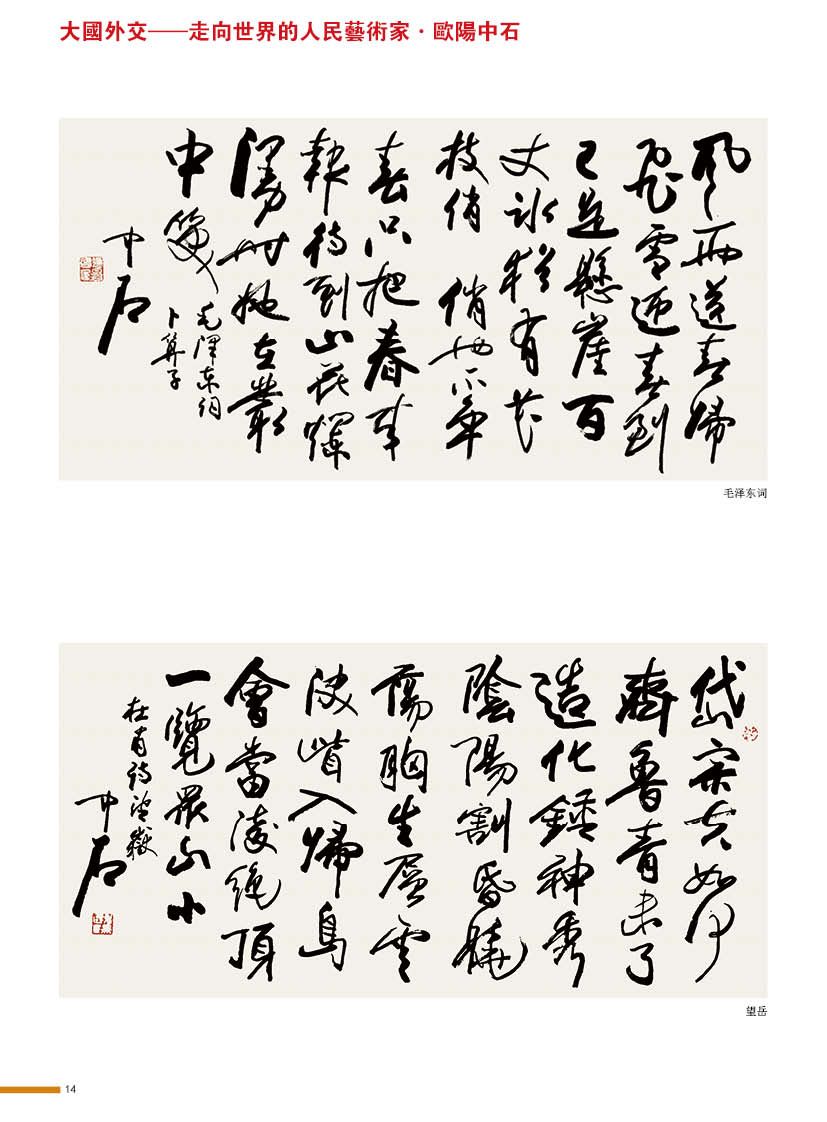 大國外交——走向世界的人民藝術家·歐陽中石
風雨送春歸
飛雪迎春到
已是懸崖百
丈冰猶有花
枝俏 俏也不爭
春只把春來
報待到山花爛
漫時她在叢
中笑
毛澤東詞
卜算子
中石
毛泽东词
岱宗夫如何
齊魯青未了
造化鍾神秀
陰陽割昏曉
蕩胸生層雲
決眥入歸鳥
會當凌絕頂
一覽眾山小
杜甫詩望嶽
中石
望岳
14